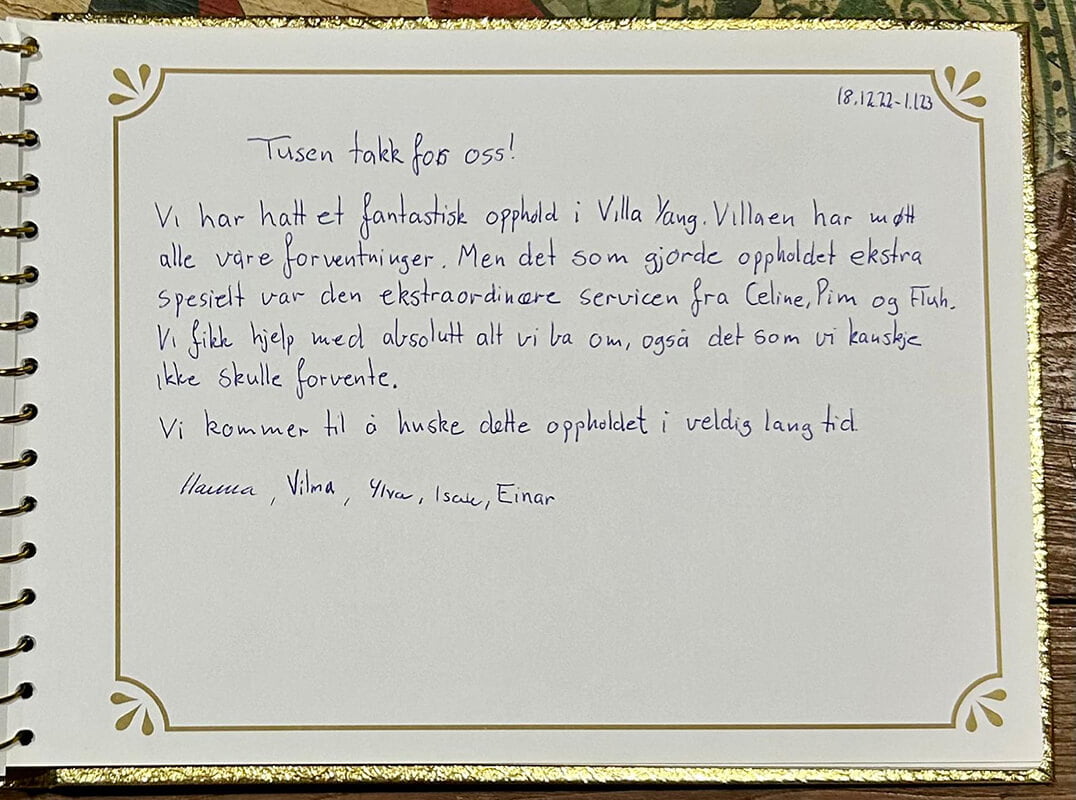 18.12.22-1.1.23
Tusen takk for oss!
Vi har hatt et fantastisk opphold i Villa Yang. Villaen har møtt
alle våre forventninger. Men det som gjorde oppholdet ekstra
spesielt var den ekstraordinære servicen fra Celine, Pim og Fluh.
Vi fikk hjelp med absolutt alt vi ba om, også det som vi kanskje
ikke skulle forvente.
Vi kommer til å huske dette oppholdet i veldig lang tid.
Hanna, Vilma, Ylva, Isak, Einar